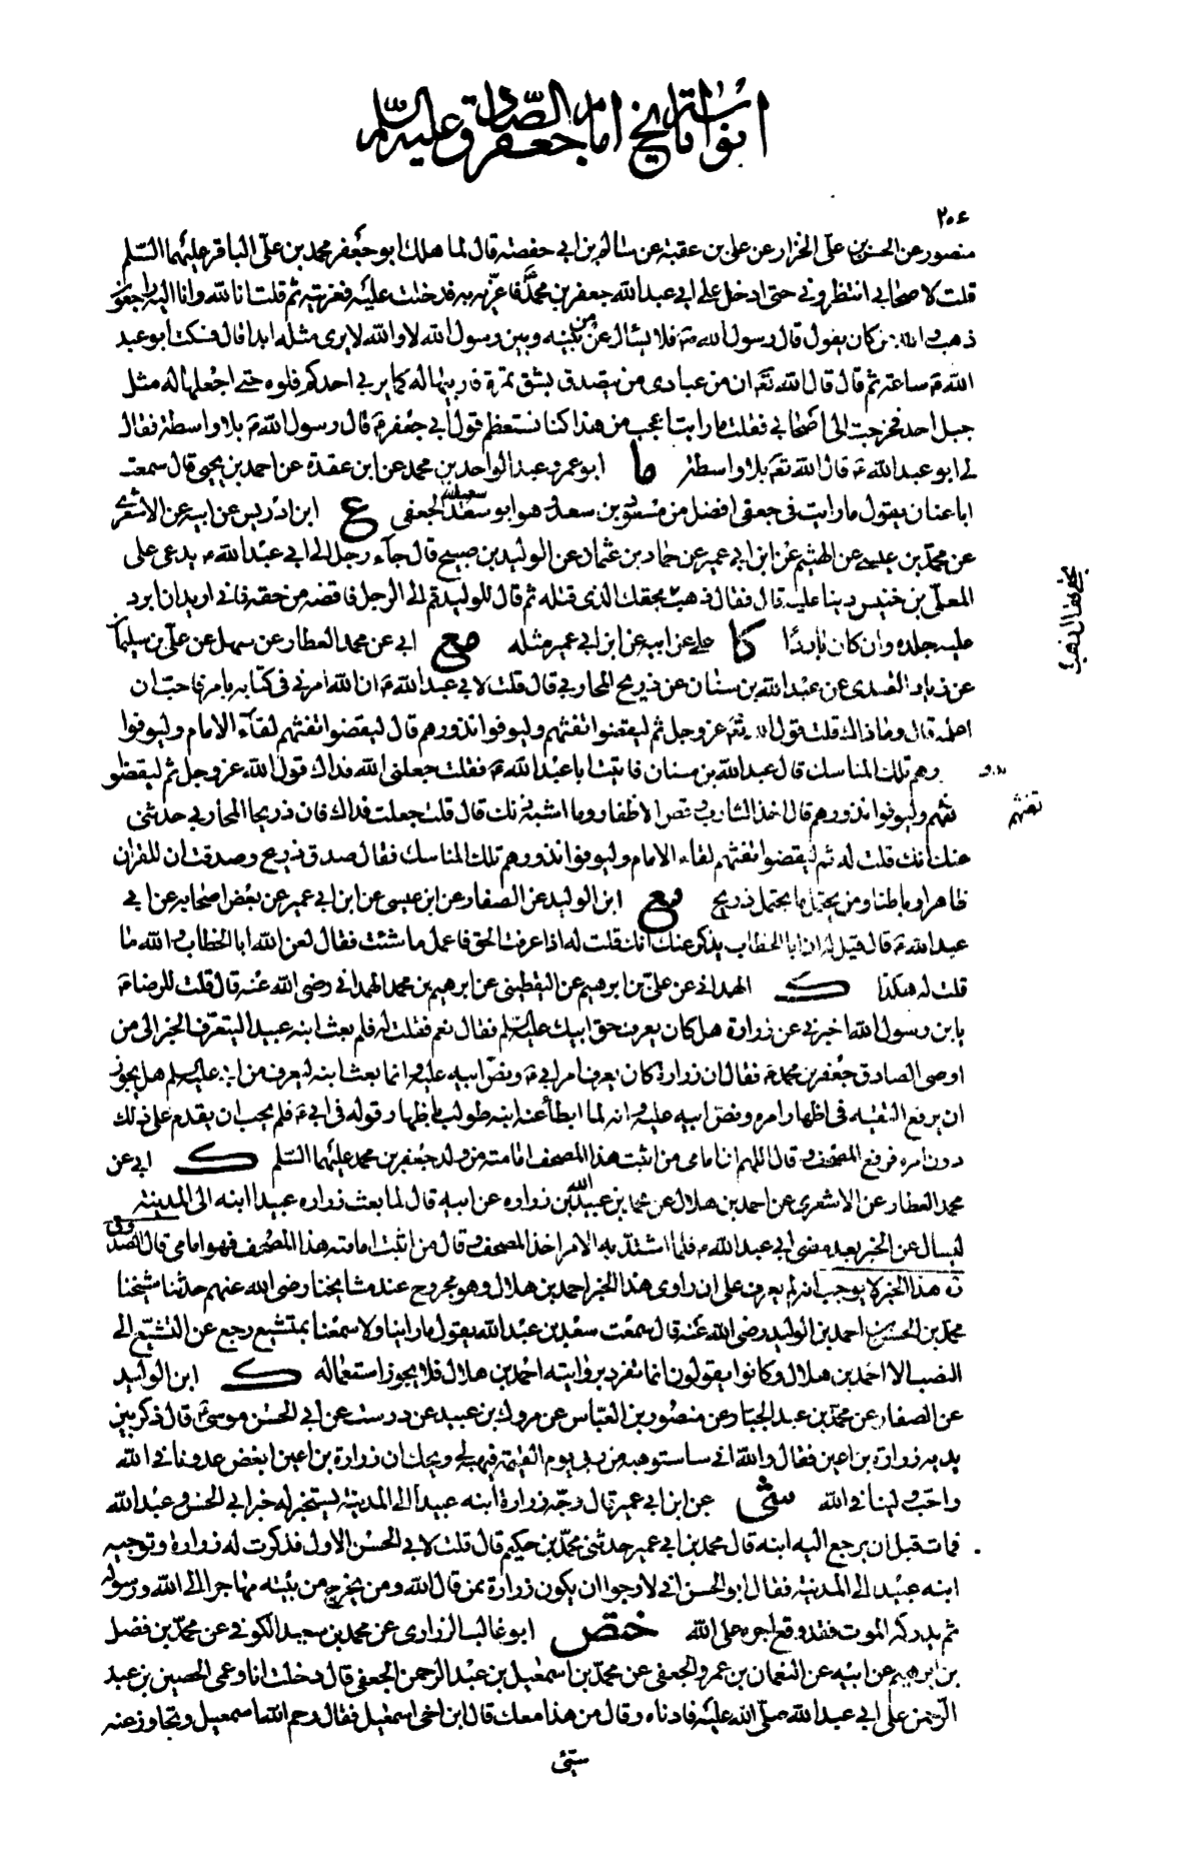 ابواب تاريخ امام جعفر الصادق عليه السلم
٢٠٤
منصور عن الحسن بن علي الخزاز عن علي بن عقبة عن سالم بن ابي حفصة قال لما هلك ابو جعفر محمد بن علي الباقر عليهما السلم
قلت لاصحابي انتظروني حتى ادخل على ابي عبد الله جعفر بن محمد فاعزيه به فدخلت عليه فعزيته ثم قلت انا لله وانا اليه راجعون
ذهب والله من كان يقول قال رسول الله ص فلا يسئل عن من بينه وبين رسول الله لا والله لا يرى مثله ابدا قال فسكت ابو عبد
الله ع ساعة ثم قال قال الله تع ان من عبادى من يتصدق بشق تمرة فاربيها له كما يربي احدكم فلوه حتى اجعلها له مثل
جبل احد فخرجت الى اصحابي فقلت ما رايت اعجب من هذا كنا نستعظم قول ابي جعفر ع قال رسول الله ص بلا واسطة فقال
لي ابو عبد الله ع قال الله تع بلا واسطة ما ابو عمرو عبد الواحد بن محمد عن ابن عقدة عن احمد بن يحيى قال سمعت
ابا غسان يقول ما رايت في جعفى افضل من مسعود بن سعد وهو ابو سعد الجعفى ع ابن ادريس عن ابيه عن الاشعرى
عن محمد بن عيسى عن الهيثم عن ابن ابي عمير عن حماد بن عثمان عن الوليد بن صبيح قال جاء رجل الى ابي عبد الله ع يدعى على
المعلى بن خنيس دينا عليه قال فقال ذهب بحقك الذى قتله ثم قال للوليد قم الى الرجل فاقضه من حقه فاني اريد ان ابرد
عليه جلده وان كان باردا كا علي عن ابيه عن ابن ابي عمير مثله مع ابي عن محمد العطار عن سهل عن علي بن سليمان
عن زياد القندى عن عبد الله بن سنان عن ذريح المحاربي قال قلت لابي عبد الله ع ان الله امرني في كتابه بامر فاحب ان
اعلمه قال وما ذاك قلت قول الله تع عز وجل ثم ليقضوا تفثهم وليوفوا نذورهم قال ليقضوا تفثهم لقاء الامام وليوفوا
نذورهم تلك المناسك قال عبد الله بن سنان فاتيت ابا عبد الله ع فقلت جعلني الله فداك قول الله عز وجل ثم ليقضوا
تفثهم وليوفوا نذورهم قال اخذ الشارب وقص الاظفار وما اشبه ذلك قال قلت جعلت فداك فان ذريحا المحاربي حدثني
عنك انك قلت له ثم ليقضوا تفثهم لقاء الامام وليوفوا نذورهم تلك المناسك فقال صدق ذريح وصدقت ان للقران
ظاهرا وباطنا ومن يحتمل ما يحتمل ذريح مع ابن الوليد عن الصفار عن ابن عيسى عن ابن ابي عمير عن بعض اصحابه عن ابي
عبد الله ع قال قيل له ان ابا الخطاب يذكر عنك انك قلت له اذا عرفت الحق فاعمل ما شئت فقال لعن الله ابا الخطاب والله ما
قلت له هكذا ك الهمداني عن علي بن ابرهيم عن اليقطيني عن ابرهيم بن محمد الهمداني رضى الله عنه قال قلت للرضا ع
يا بن رسول الله اخبرني عن زرارة هل كان يعرف حق ابيك عليه السلم فقال نعم فقلت له فلم بعث ابنه عبيدا ليتعرف الخبر الى من
اوصى الصادق جعفر بن محمد ع فقال ان زرارة كان يعرف امر ابي ع ونص ابيه عليه وانما بعث ابنه ليعرف من ابي عليه السلم هل يجوز
ان يرفع التقية في اظهار امره ونص ابيه عليه وانه لما ابطأ عنه ابنه طولب باظهار قوله في ابي ع فلم يحب ان يقدم على ذلك
دون امره فرفع المصحف وقال اللهم ان امامي من اثبت هذا المصحف امامته من ولد جعفر بن محمد عليهما السلم ك ابي عن
محمد العطار عن الاشعرى عن احمد بن هلال عن محمد بن عبد الله بن زرارة عن ابيه قال لما بعث زرارة عبيدا ابنه الى المدينة
ليسال عن الخبر بعد مضى ابي عبد الله ع فلما اشتد به الامر اخذ المصحف وقال من اثبت امامته هذا المصحف فهو امامى قال الصدوق
ره هذا الخبر لا يوجب انه لم يعرف على ان راوى هذا الخبر احمد بن هلال وهو مجروح عند مشايخنا رضى الله عنهم حدثنا شيخنا
محمد بن الحسن بن احمد بن الوليد رضى الله عنه قال سمعت سعد بن عبد الله يقول ما راينا ولا سمعنا بمتشيع رجع عن التشيع الى
النصب الا احمد بن هلال وكانوا يقولون ان ما تفرد بروايته احمد بن هلال فلا يجوز استعماله ك ابن الوليد
عن الصفار عن محمد بن عبد الجبار عن منصور بن العباس عن مروك بن عبيد عن درست عن ابي الحسن موسى ع قال ذكر بين
يديه زرارة بن اعين فقال والله اني ساستوهبه من ربي يوم القيمة فيهبه لي ويحك ان زرارة بن اعين ابغض عدونا في الله
واحب ولينا في الله شى عن ابن ابي عمير قال وجه زرارة ابنه عبيدا الى المدينة يستخبر له خبر ابي الحسن وعبد الله
فمات قبل ان يرجع اليه ابنه قال محمد بن ابي عمير حدثني محمد بن حكيم قال قلت لابي الحسن الاول فذكرت له زرارة وتوجيهه
ابنه عبيدا الى المدينة فقال ابو الحسن اني لارجو ان يكون زرارة ممن قال الله ومن يخرج من بيته مهاجرا الى الله ورسوله
ثم يدركه الموت فقد وقع اجره على الله ختص ابو غالب الزرارى عن محمد بن سعيد الكوفي عن محمد بن فضل
بن ابرهيم عن ابيه عن النعمان بن عمرو الجعفى عن محمد بن اسمعيل بن عبد الرحمن الجعفى قال دخلت انا وعمى الحصين بن عبد
الرحمن على ابي عبد الله صلى الله عليه فادناه وقال من هذا معك قال ابن اخى اسمعيل فقال رحم الله اسمعيل وتجاوز عنه
سيئ
تفثهم